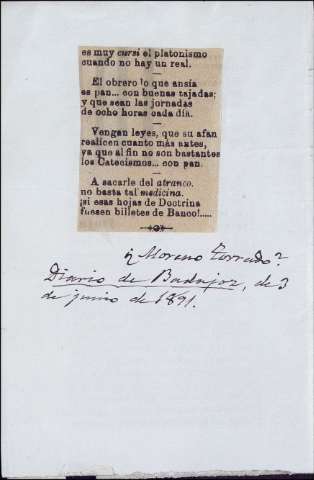 es muy cursi el platonismo
cuando no hay un real.
El obrero lo que ansía
es pan... con buenas tajadas;
y que sean las jornadas
de ocho horas cada día.
Vengan leyes, que su afan
realicen cuanto más antes,
ya que al fin no son bastantes
los Catecismos... con pan.
A sacarle del atranco.
no basta tal medicina.
¡si esas hojas de Doctrina
fuesen billetes de Banco!.....
¿Moreno Torrado?
Diario de Badajoz, de 3
de junio de 1891.